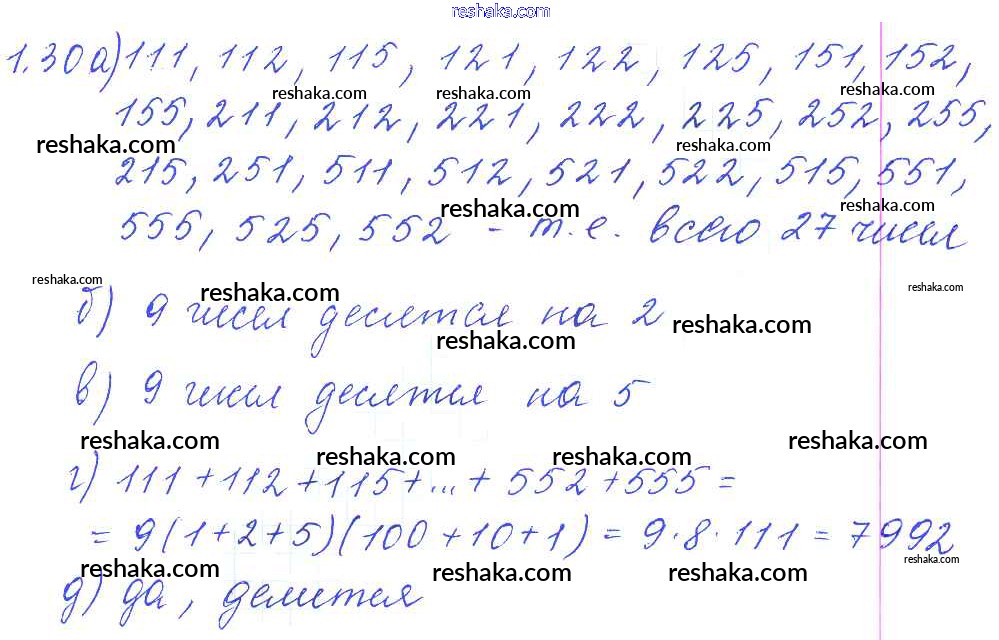 reshaka.com
1.30 а) 111, 112, 115, 121, 122, 125, 151, 152,
reshaka.com reshaka.com reshaka.com
155, 211, 212, 221, 222, 225, 252, 255,
reshaka.com reshaka.com
215, 251, 511, 512, 521, 522, 515, 551,
reshaka.com reshaka.com
555, 525, 552 - т.е. всего 27 чисел
reshaka.com reshaka.com reshaka.com
б) 9 чисел делятся на 2
reshaka.com reshaka.com
в) 9 чисел делятся на 5
reshaka.com reshaka.com
reshaka.com reshaka.com
г) 111 + 112 + 115 + ... + 552 + 555 =
= 9(1+2+5)(100+10+1) = 9·8·111 = 7992
reshaka.com reshaka.com reshaka.com reshaka.com
д) да, делится